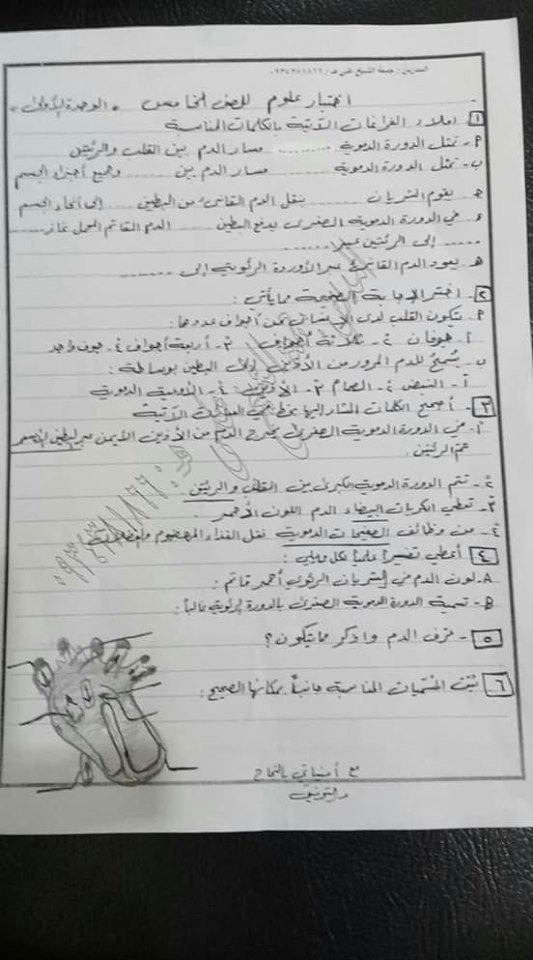 المدرس : جمعة الشيخ علي هـ :
اختبار علوم للصف الخامس " الوحدة الأولى "
1 - املاء الفراغات الآتية بالكلمات المناسبة
P - تمثل الدورة الدموية ......... مسار الدم بين القلب والرئتين
ب - تمثل الدورة الدموية ......... مسار الدم بين ......... وجميع أجزاء الجسم
ج - يقوم الشريان ......... بنقل الدم القاني من البطين ......... إلى أنحاء الجسم
د - في الدورة الدموية الصغرى يدفع البطين ......... الدم القاتم المحمل بغاز ......
...... إلى الرئتين عبر .........
هـ - يعود الدم القاني عبر الأوردة الرئوية إلى .........
2 - اختر الإجابة الصحيحة مما يأتي :
P - يتكون القلب لدى الإنسان من أجواف عددها :
1 - جوفان 2 - ثلاثة أجواف 3 - أربعة أجواف 4 - جوف واحد
ب - يسمح للدم المرور من الأذين إلى البطين بوساطة :
1 - النبض 2 - الصمام 3 - الأذين 4 - الأوعية الدموية
3 - أصحح الكلمات المشار إليها بخط في العبارات الآتية
1 - في الدورة الدموية الصغرى يخرج الدم من الأذين الأيمن عبر البطين الأيسر
الرئتين .
2 - تتم الدورة الدموية الكبرى بين القلب والرئتين .
3 - تعطي الكريات البيضاء الدم اللون الأحمر .
4 - من وظائف الصفيحات الدموية نقل الغذاء المهضوم
4 - أعطي تفسيراً علمياً لكل مما يلي :
A - لون الدم في الشريان الرئوي أحمر قاتم :
B - تسمية الدورة الدموية الصغرى بالدورة الرئوية غالباً :
5 - عرف الدم واذكر مما يتكون ؟
6 - ثبت المسميات المناسبة جانباً بمكانها الصحيح :
مع أمنياتي بالنجاح
والتوفيق